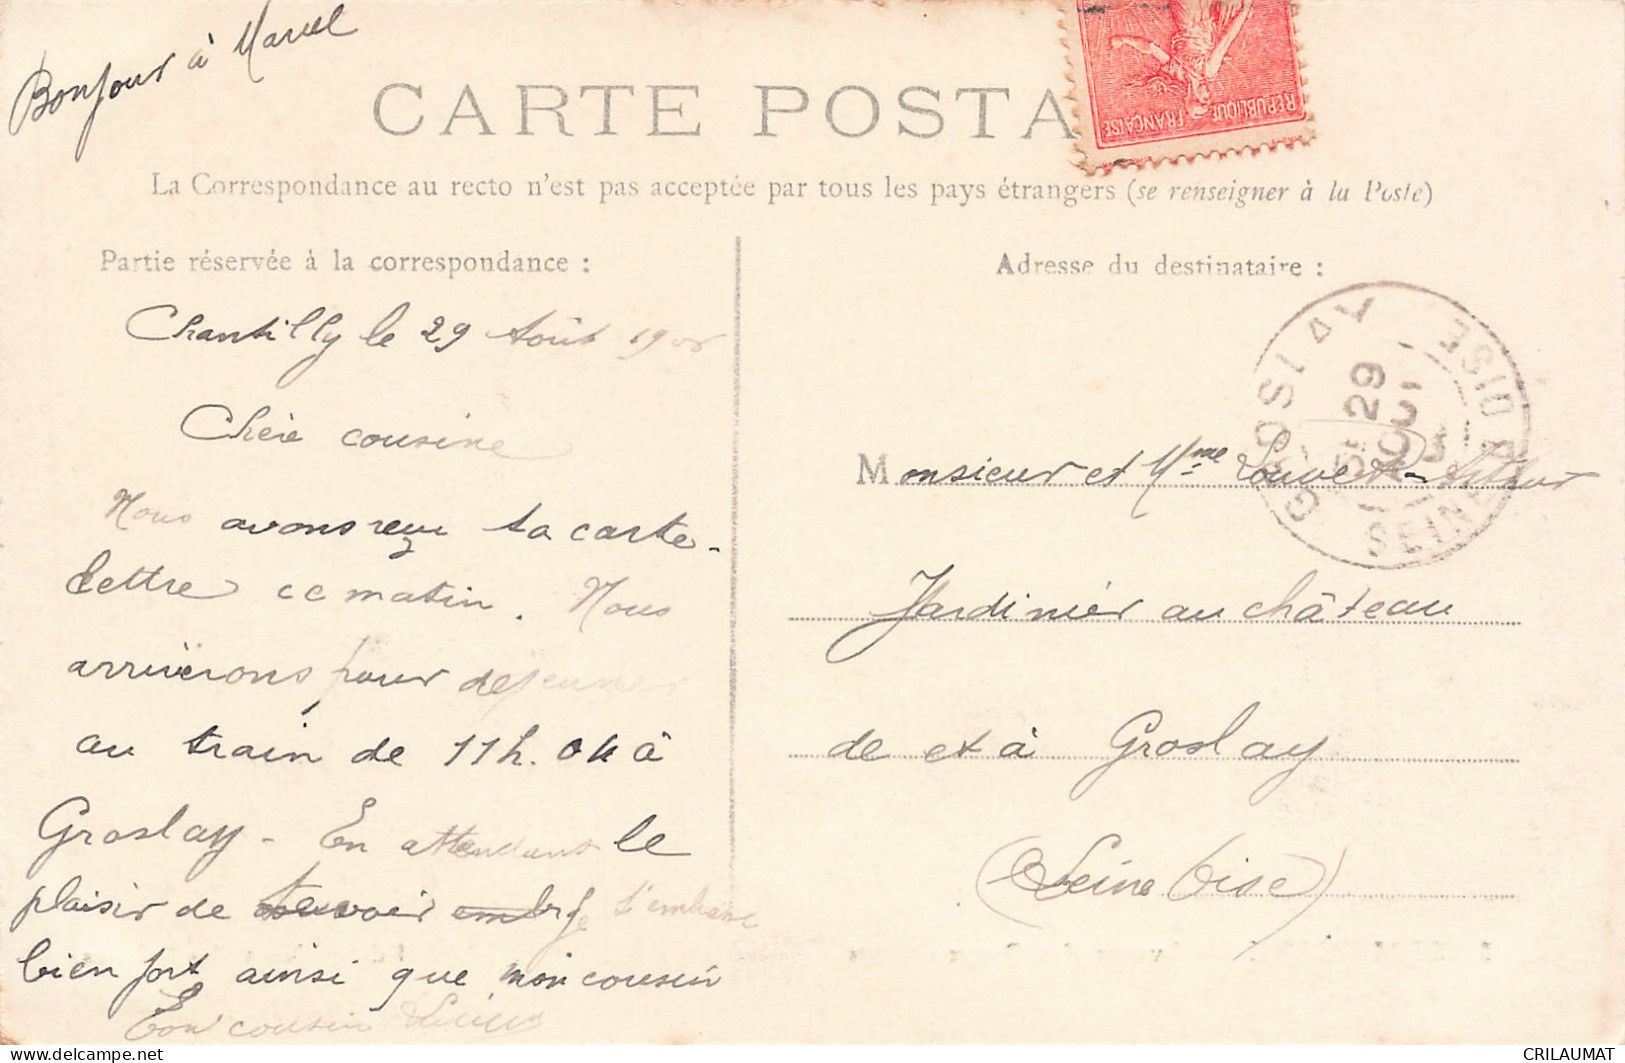 Bonjour à Marcel
CARTE POSTA
RÉPUBLIQUE
FRANÇAISE
La Correspondance au recto n'est pas acceptée par tous les pays étrangers (se renseigner à la Poste)
Partie réservée à la correspondance :
Chantilly le 29 Août 1905
Chère cousine
Nous avons reçu ta carte-
lettre ce matin. Nous
arriverons pour déjeuner
au train de 11h. 04 à
Groslay - En attendant le
plaisir de te voir je t'embrasse
bien fort ainsi que mon cousin
Ton cousin
Adresse du destinataire :
GROSLAY
29
AOUT
05
SEINE & OISE
Monsieur et Mme Louvet-Arthur
Jardinier au château
de et à Groslay
(Seine Oise)
CRILAUMAT